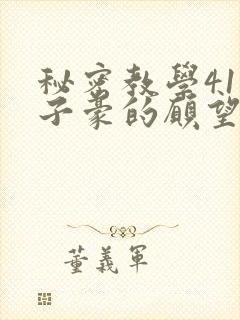 秘密教學41
子豪的願望
董義軍